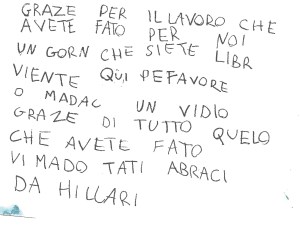 GRAZE PER IL LAVORO CHE
AVETE FATO PER NOI
UN GORN CHE SIETE LIBR
VIENTE QUI PEFAVORE
O MADAC UN VIDIO
GRAZE DI TUTTO QUELO
CHE AVETE FATO
VI MADO TATI ABRACI
DA HILLARI